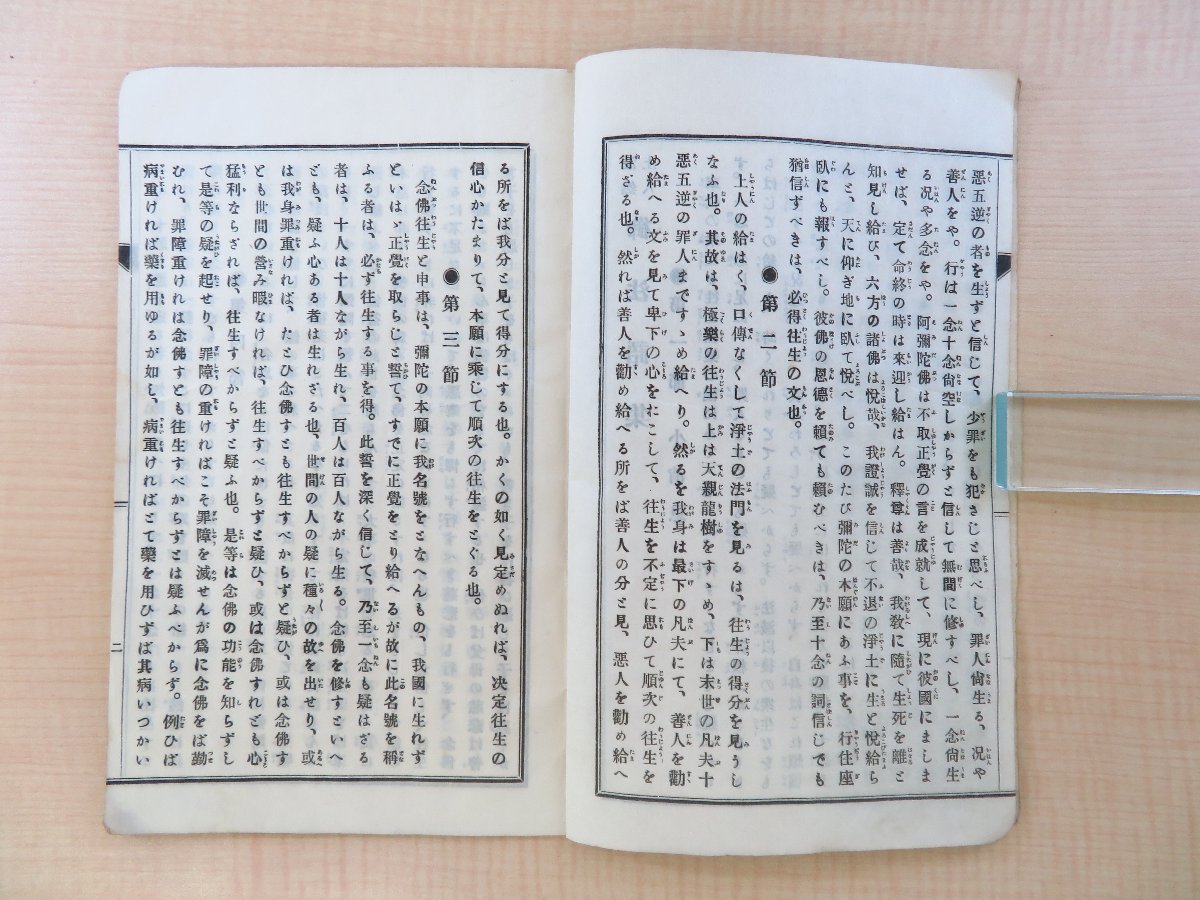 惡五逆の者を生ずと信じて、少罪をも犯さじと思べし、罪人尙生る、況や
善人をや。行は一念十念尙空しからずと信して無間に修すべし、一念尙生
る況や多念をや。阿彌陀佛は不取正覺の言を成就して、現に彼國にましま
せば、定て命終の時は來迎し給はん。釋尊は善哉、我敎に隨て生死を離と
知見し給び、六方の諸佛は悅哉、我證誠を信じて不退の淨土に生と悅給ら
んと、天に仰ぎ地に臥て悅べし。このたび彌陀の本願にあふ事を、行住座
臥にも報すべし。彼佛の恩德を賴ても賴むべきは、乃至十念の詞信じても
猶信ずべきは、必得往生の文也。
●第二節
上人の給はく、口傳なくして淨土の法門を見るは、往生の得分を見うし
なふ也。其故は、極樂の往生は上は天親龍樹をすゝめ、下は末世の凡夫十
惡五逆の罪人まですゝめ給へり。然るを我身は最下の凡夫にて、善人を勸
め給へる文を見て卑下の心をおこして、往生を不定に思ひて順次の往生を
得ざる也。然れば善人を勸め給へる所をば善人の分と見、惡人を勸め給へ
る所をば我分と見て得分にする也。かくの如く見定めぬれば、决定往生の
信心かたまりて、本願に乘じて順次の往生をとぐる也。
●第三節
念佛往生と申事は、彌陀の本願に我名號をとなへんもの、我國に生れず
といはゞ正覺を取らじと誓て、すでに正覺をとり給へるが故に此名號を稱
ふる者は、必ず往生する事を得。此誓を深く信じて、乃至一念も疑はざる
者は、十人は十人ながら生れ、百人は百人ながら生る。念佛を修すといへ
ども、疑ふ心ある者は生れざる也、世間の人の疑に種々の故を出せり、或
は我身罪重ければ、たとひ念佛すとも往生すべからずと疑ひ、或は念佛す
とも世間の營み暇なければ、往生すべからずと疑ひ、或は念佛すれども心
猛利ならざれば、往生すべからずと疑ふ也。是等は念佛の功能を知らずし
て是等の疑を起せり、罪障の重ければこそ罪障を滅せんが爲に念佛をば勤
むれ、罪障重ければ念佛すとも往生すべからずとは疑ふべからず。例ひば
病重ければ藥を用ゆるが如し、病重ければとて藥を用ひずば其病いつかい
二